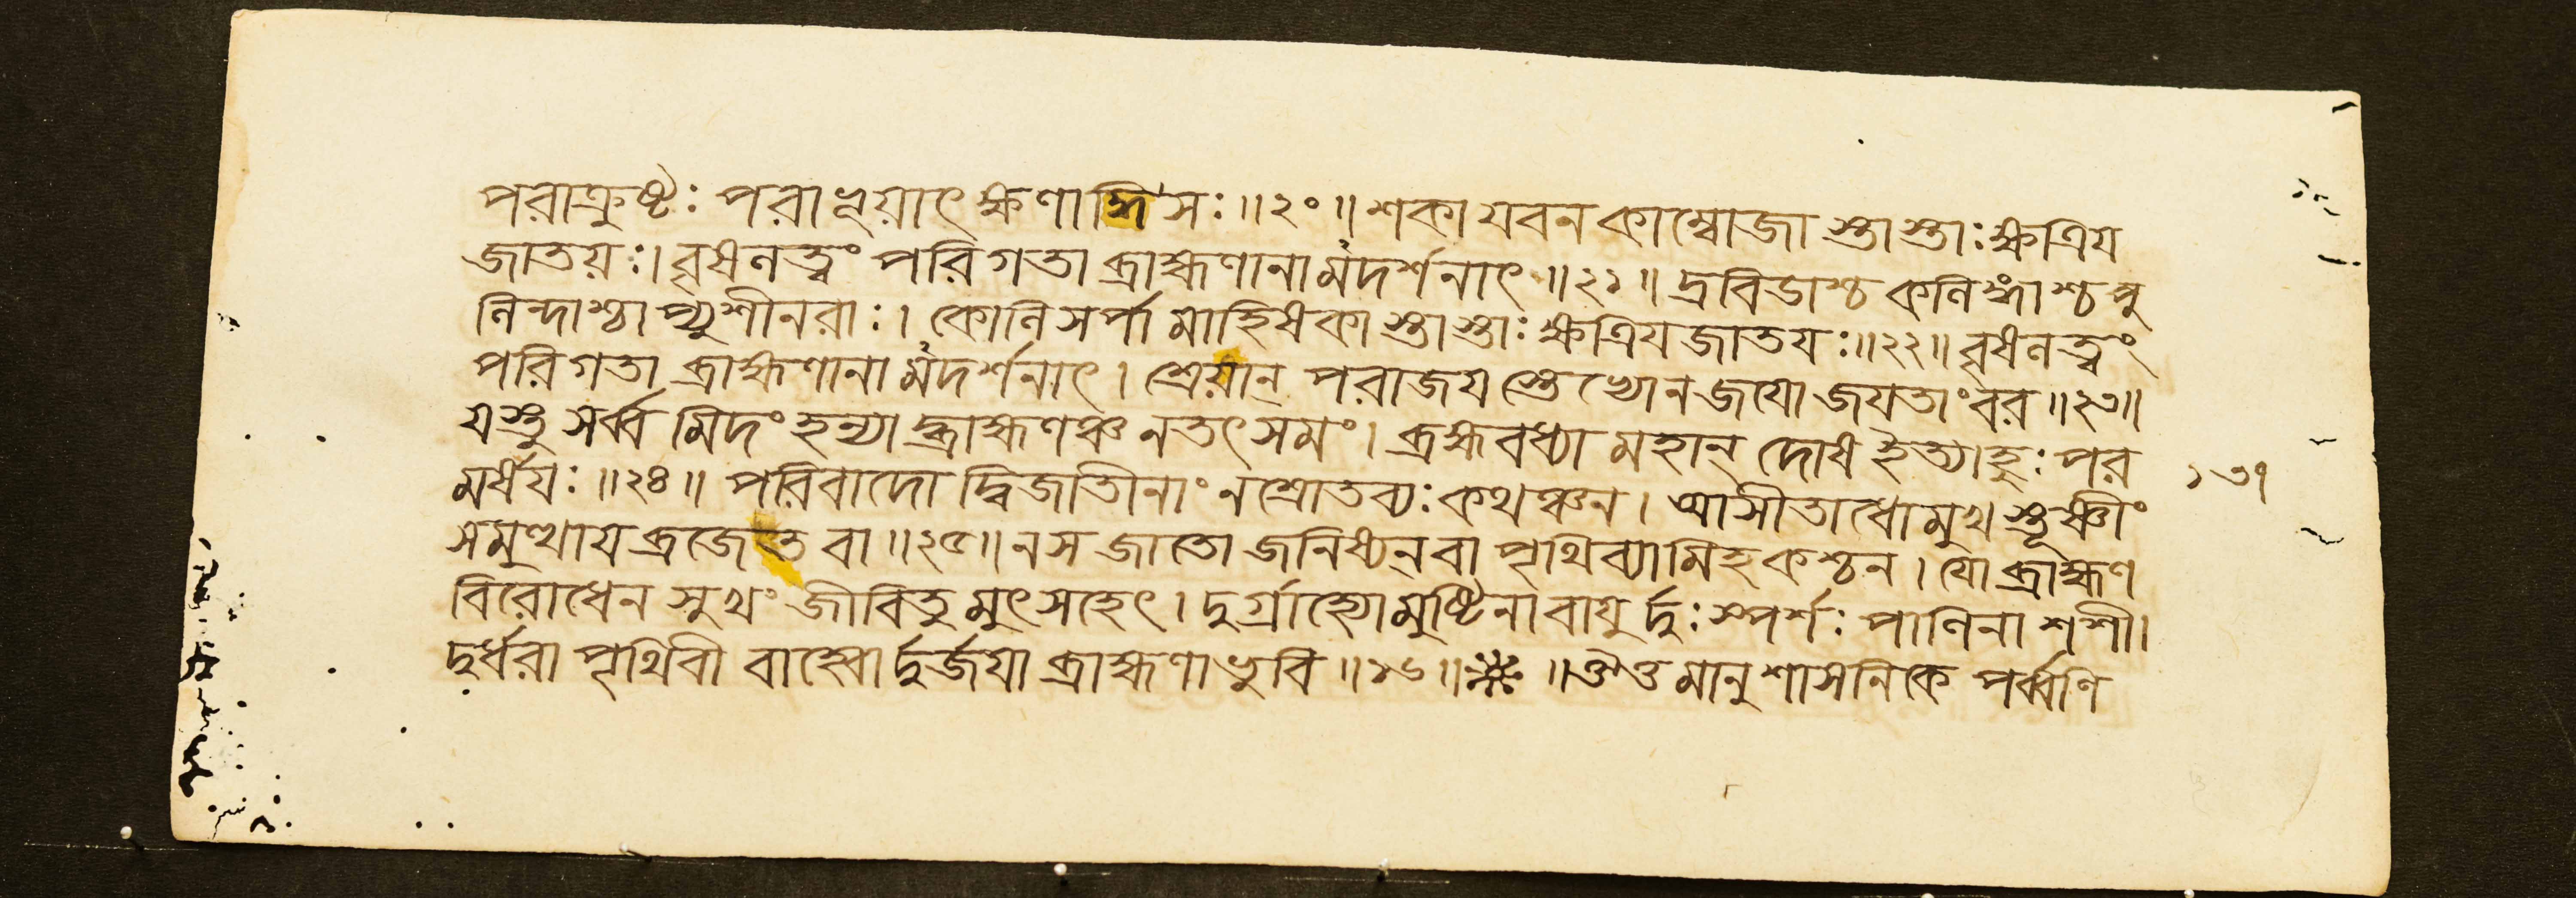 পরাক্রুষ্টঃ পরাপ্নুয়াৎ ক্ষণাদ্ধি সঃ॥২০॥ শকা যবন কাম্বোজা স্তাস্তাঃ ক্ষত্রিয
জাতয়ঃ। বৃষলত্বং পরিগতা ব্রাহ্মণানামদর্শনাৎ॥২১॥ দ্রবিডাশ্চ কলিঙ্গাশ্চ পু
লিন্দাশ্চাপ্যুশীনরাঃ। কোলিসর্পা মাহিষকা স্তাস্তাঃ ক্ষত্রিয জাতযঃ॥২২॥ বৃষলত্বং
পরিগতা ব্রাহ্মণানামদর্শনাৎ। শ্রেয়ান্ পরাজয স্তেভ্যো ন জযো জযতাং বর॥২৩॥
যস্তু সর্ব্ব মিদং হন্যাদ্ব্রাহ্মণঞ্চ ন তৎ সমং। ব্রহ্মবধ্যা মহান্ দোষ ইত্যাহুঃ পর
মর্ষযঃ॥২৪॥ পরিবাদো দ্বিজাতীনাং ন শ্রোতব্যঃ কথঞ্চন। আসীতাধোমুখ স্তূষ্ণীং
সমুত্থায ব্রজেত বা॥২৫॥ ন স জাতো জনিষ্যন্ বা পৃথিব্যামিহ কশ্চন। যো ব্রাহ্মণ
বিরোধেন সুখং জীবিতুমুৎসহেৎ। দুর্গ্রাহ্যো মুষ্টিনা বাযু র্দুঃস্পর্শঃ পাণিনা শশী।
দুর্ধরা পৃথিবী বাহ্বো র্দুর্জযা ব্রাহ্মণা ভুবি॥২৬॥ ॥ ঔঁ মানুশাসনিকে পর্ব্বণি
১৩৭